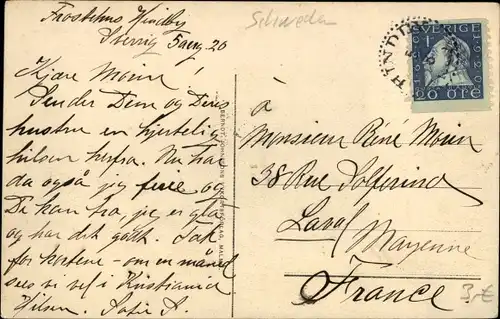 Schweden
Frostehus Hindby
Sverrig 5 aug. 20
Kjære Moïn!
Sender Dem og Deres
hustru en hjertelig
hilsen herfra. Nu har
da også jeg ferie og
De kan tro, jeg er glad
og har det godt. Tak
for kortene - om en måned
sees vi vel i Kristiania
Hilsen.
à
Monsieur René Moïn
38 Rue Solférino
Laval
Mayenne
France
SVERIGE
1920
ÖRE
3,-€